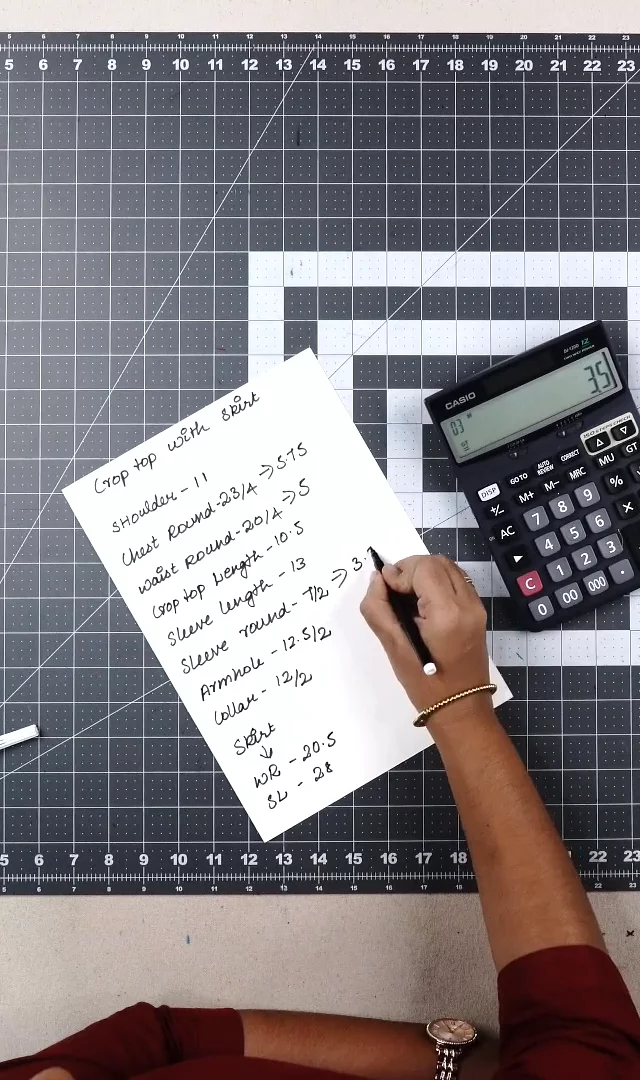 5 6 7 8 9 10 11 12 13 14 15 16 17 18 19 20 21 22 23
Crop top with Skirt
SHoulder - 11
Chest Round - 23/4 → 5.75
Waist Round - 20/4 → 5
Crop top Length - 10.5
Sleeve length - 13
Sleeve round - 7/2 → 3.
Armhole - 12.5/2
Collar - 12/2
Skirt
↓
WR - 20.5
SL - 28
CASIO
3.5
03
DISP GO TO AUTO REVIEW CORRECT
+/- M+ M- MRC MU GT
AC 7 8 9 %
▶ 4 5 6 ×
C 1 2 3
0 00 000 .
5 6 7 8 9 10 11 12 13 14 15 16 17 18 22 23